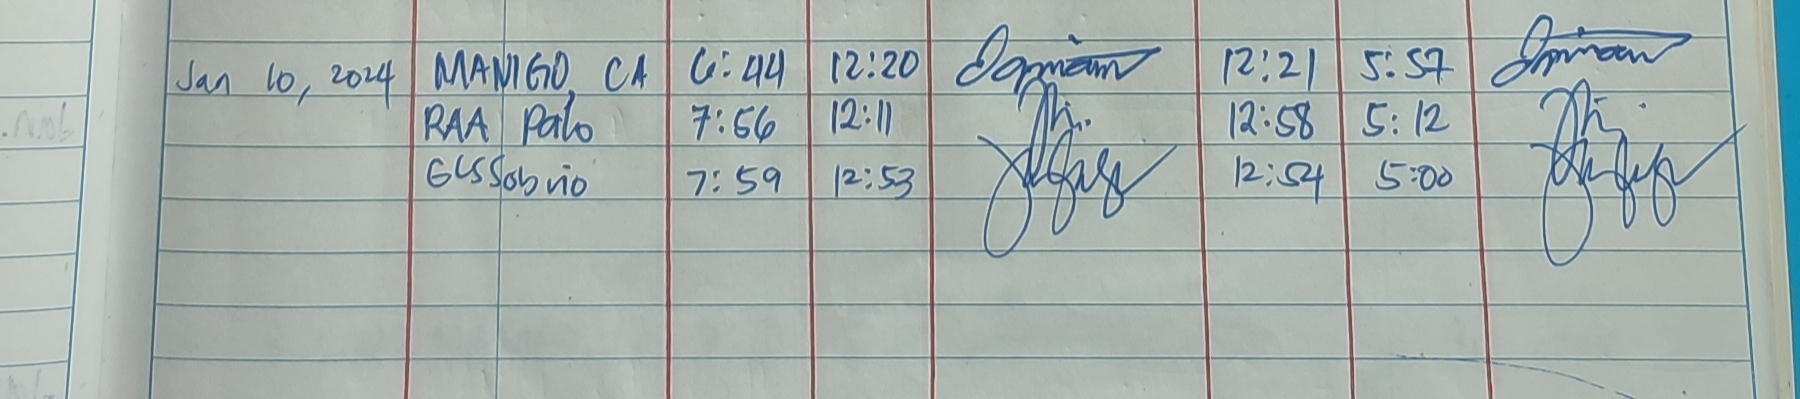 Jan 10, 2024 MANIGO, CA 6:44 12:20 12:21 5:57
RAA Palo 7:56 12:11 12:58 5:12
GLSSobrio 7:59 12:53 12:54 5:00